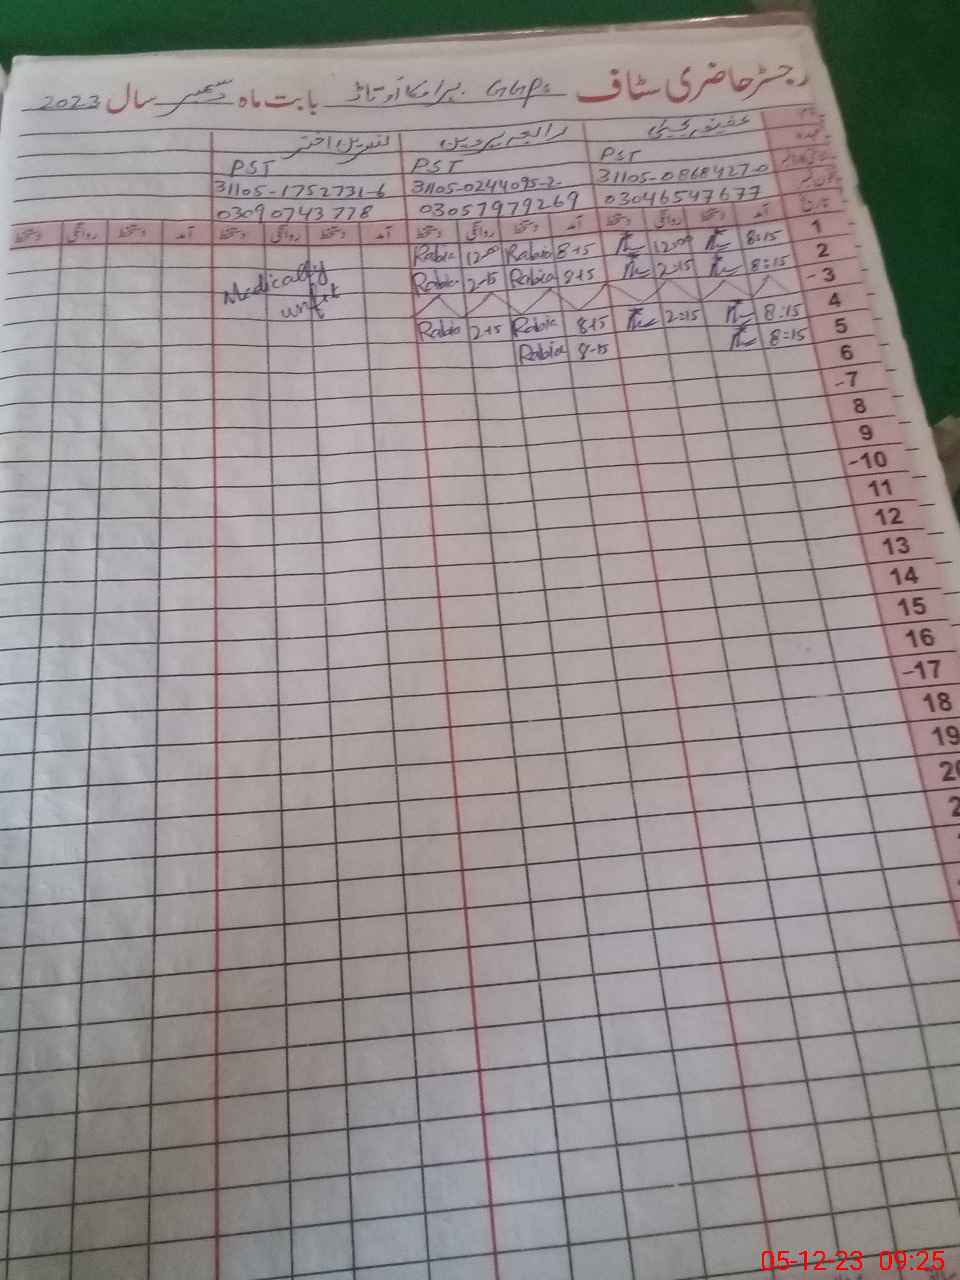 رجسٹر حاضری سٹاف GGPS بابت ماہ دسمبر سال 2023
رابعہ پروین نسرین اختر
PST PST PST
31105-0868427-0 31105-0244095-2 31105-1752731-6
03046547677 03057979269 03090743778
تاریخ آمد دستخط روانگی دستخط آمد دستخط روانگی دستخط آمد دستخط روانگی دستخط آمد دستخط روانگی دستخط
1 8:15 12:00 8:15 Rabia 12:00 Rabia
2 8:15 2:15 8:15 Rabia 2:15 Rabia Medically
-3 unfit
4 8:15 2:15 8:15 Rabia 2:15 Rabia
5 8:15 8:15 Rabia
6
-7
8
9
-10
11
12
13
14
15
16
-17
18
19
05-12-23 09:25